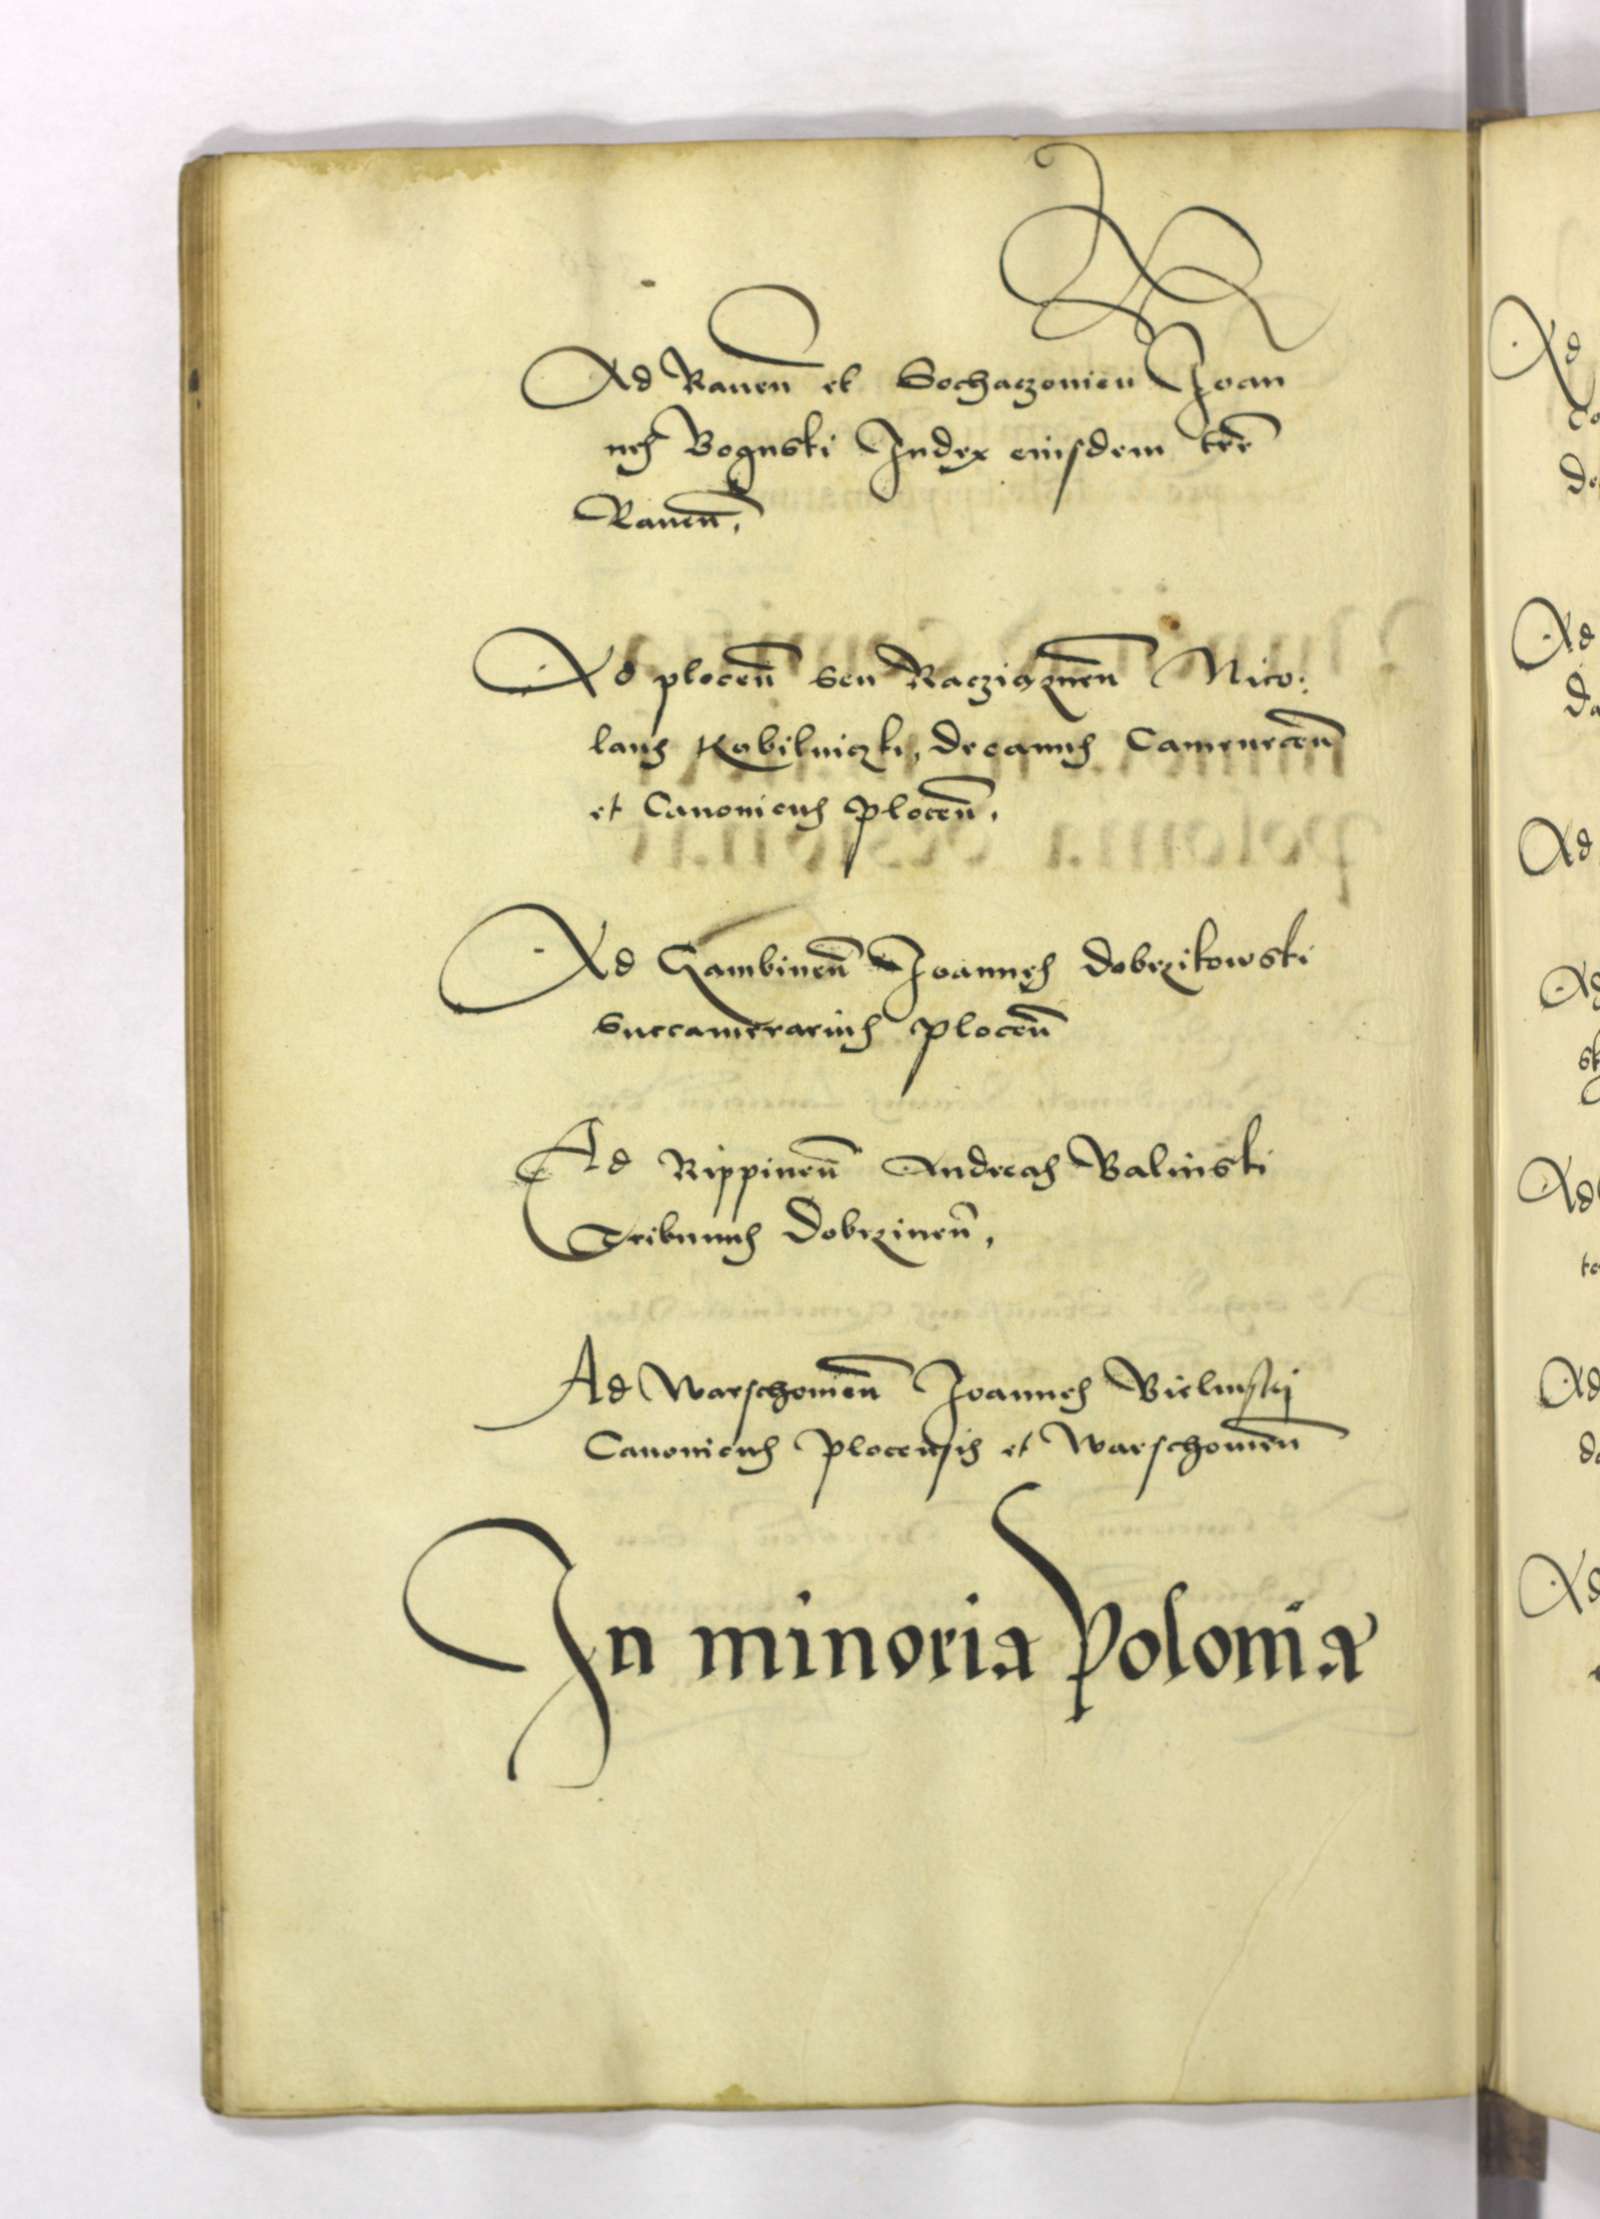 Ad Rauen̄ et Sochaczouien Joan
nes Boguski Judex eiusdem tr̄e
Rauen̄,
Ad plocen̄ seu Raczigznen̄ Nico:
laus Kobilniczki, decanus Camenecen̄
et Canonicus plocen̄,
Ad Gambinen̄ Joannes dobrzikowski
succamerarius plocen̄
Ad Rippinen̄ Andreas Balinski
Tribunus Dobrzinen̄,
Ad Warschouien̄ Joannes Bielinskj
Canonicus plocensis et Warschouien̄
In minoria Polonia